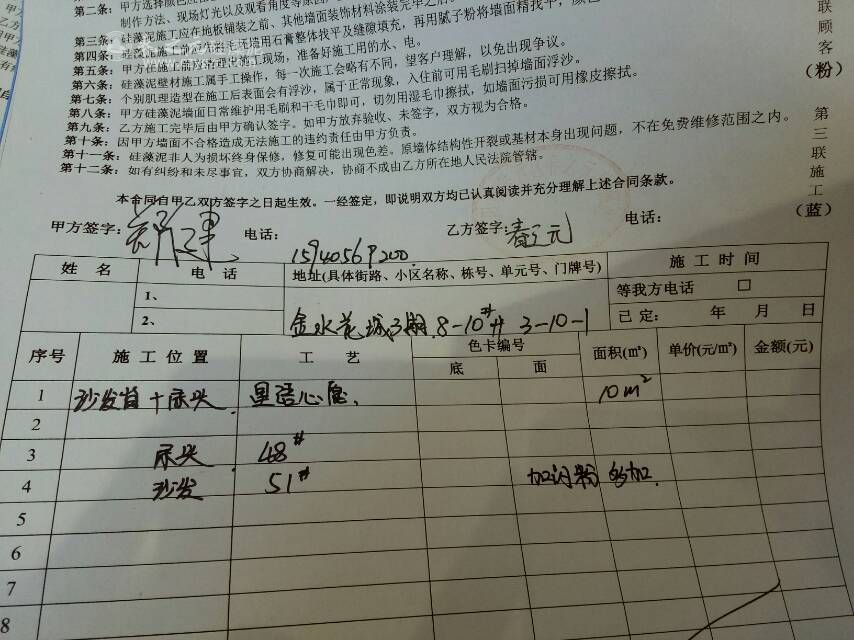 第二条：甲方选择颜色应
制作方法、现场灯光以及观看角度等原因
第三条：硅藻泥施工应在地板铺装之前、其他墙面装饰材料涂装完毕之后
第四条：硅藻泥施工前必须将毛坯墙用石膏整体找平及缝隙填充，再用腻子粉将墙面精找平，
第五条：甲方在施工前应清理出施工现场，准备好施工用的水、电。
第六条：硅藻泥壁材施工属手工操作，每一次施工会略有不同，望客户理解，以免出现争议。
第七条：个别肌理造型在施工后表面会有浮沙，属于正常现象，入住前可用毛刷扫掉墙面浮沙。
第八条：甲方硅藻泥墙面日常维护用毛刷和干毛巾即可，切勿用湿毛巾擦拭，如墙面污损可用橡皮擦拭。
第九条：乙方施工完毕后由甲方确认签字。如甲方放弃验收、未签字，双方视为合格。
第十条：因甲方墙面不合格造成无法施工的违约责任由甲方负责。
第十一条：硅藻泥非人为损坏终身保修，修复可能出现色差。原墙体结构性开裂或基材本身出现问题，不在免费维修范围之内。
第十二条：如有纠纷和未尽事宜，双方协商解决，协商不成由乙方所在地人民法院管辖。
联顾客（粉）
第三联施工（蓝）
本合同自甲乙双方签字之日起生效。一经签定，即说明双方均已认真阅读并充分理解上述合同条款。
甲方签字： 电话：15940569200 乙方签字： 电话：
姓 名 电 话 地址(具体街路、小区名称、栋号、单元号、门牌号) 施 工 时 间
1、 等我方电话 □
2、 金水花城3期 8-10# 3-10-1 已定： 年 月 日
序号 施 工 位 置 工 艺 色卡编号 面积(m²) 单价(元/m²) 金额(元)
底 面
1 沙发背+床头 星语心愿、 10m²
2
3 床头 48#
4 沙发 51# 加闪粉 多加
5
6
7
8